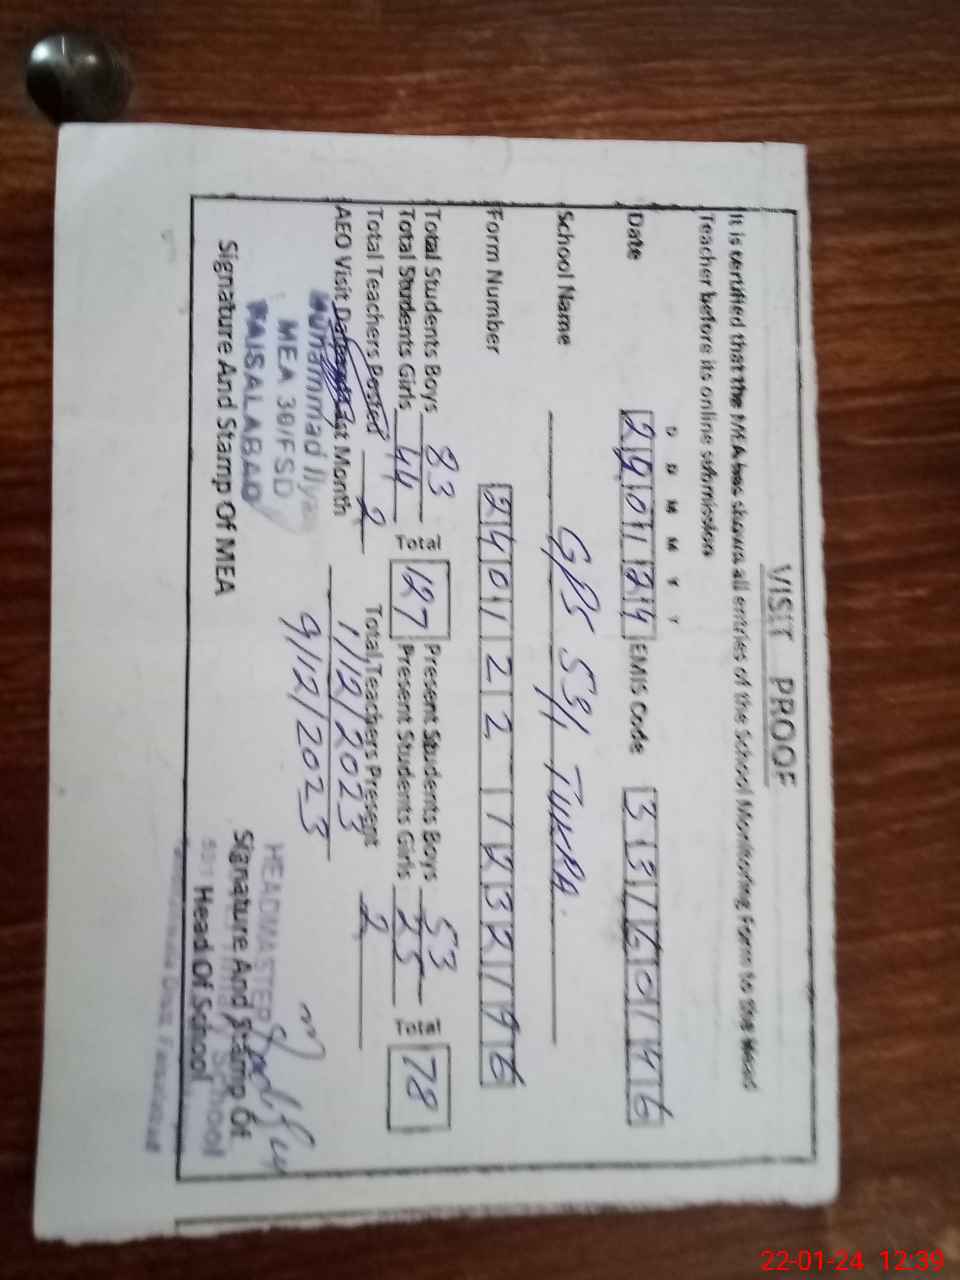 VISIT PROOF
It is certified that the MEA has shown all entries of the School Monitoring Form to the Head
Teacher before its online submission
D D M M Y Y
Date 220124 EMIS Code 33160146
School Name GPS 591 TUKRA
Form Number 2401221232196
Total Students Boys 83 Total 127 Present Students Boys 53 Total 78
Total Students Girls 44 Present Students Girls 25
Total Teachers Posted 2 Total Teachers Present 2
AEO Visit Last Month 1/12/2023
9/12/2023
Muhammad Ilyas
MEA 36/FSD
FAISALABAD
Signature And Stamp Of MEA
HEADMASTER
Signature And Stamp Of
Head Of School
22-01-24 12:39